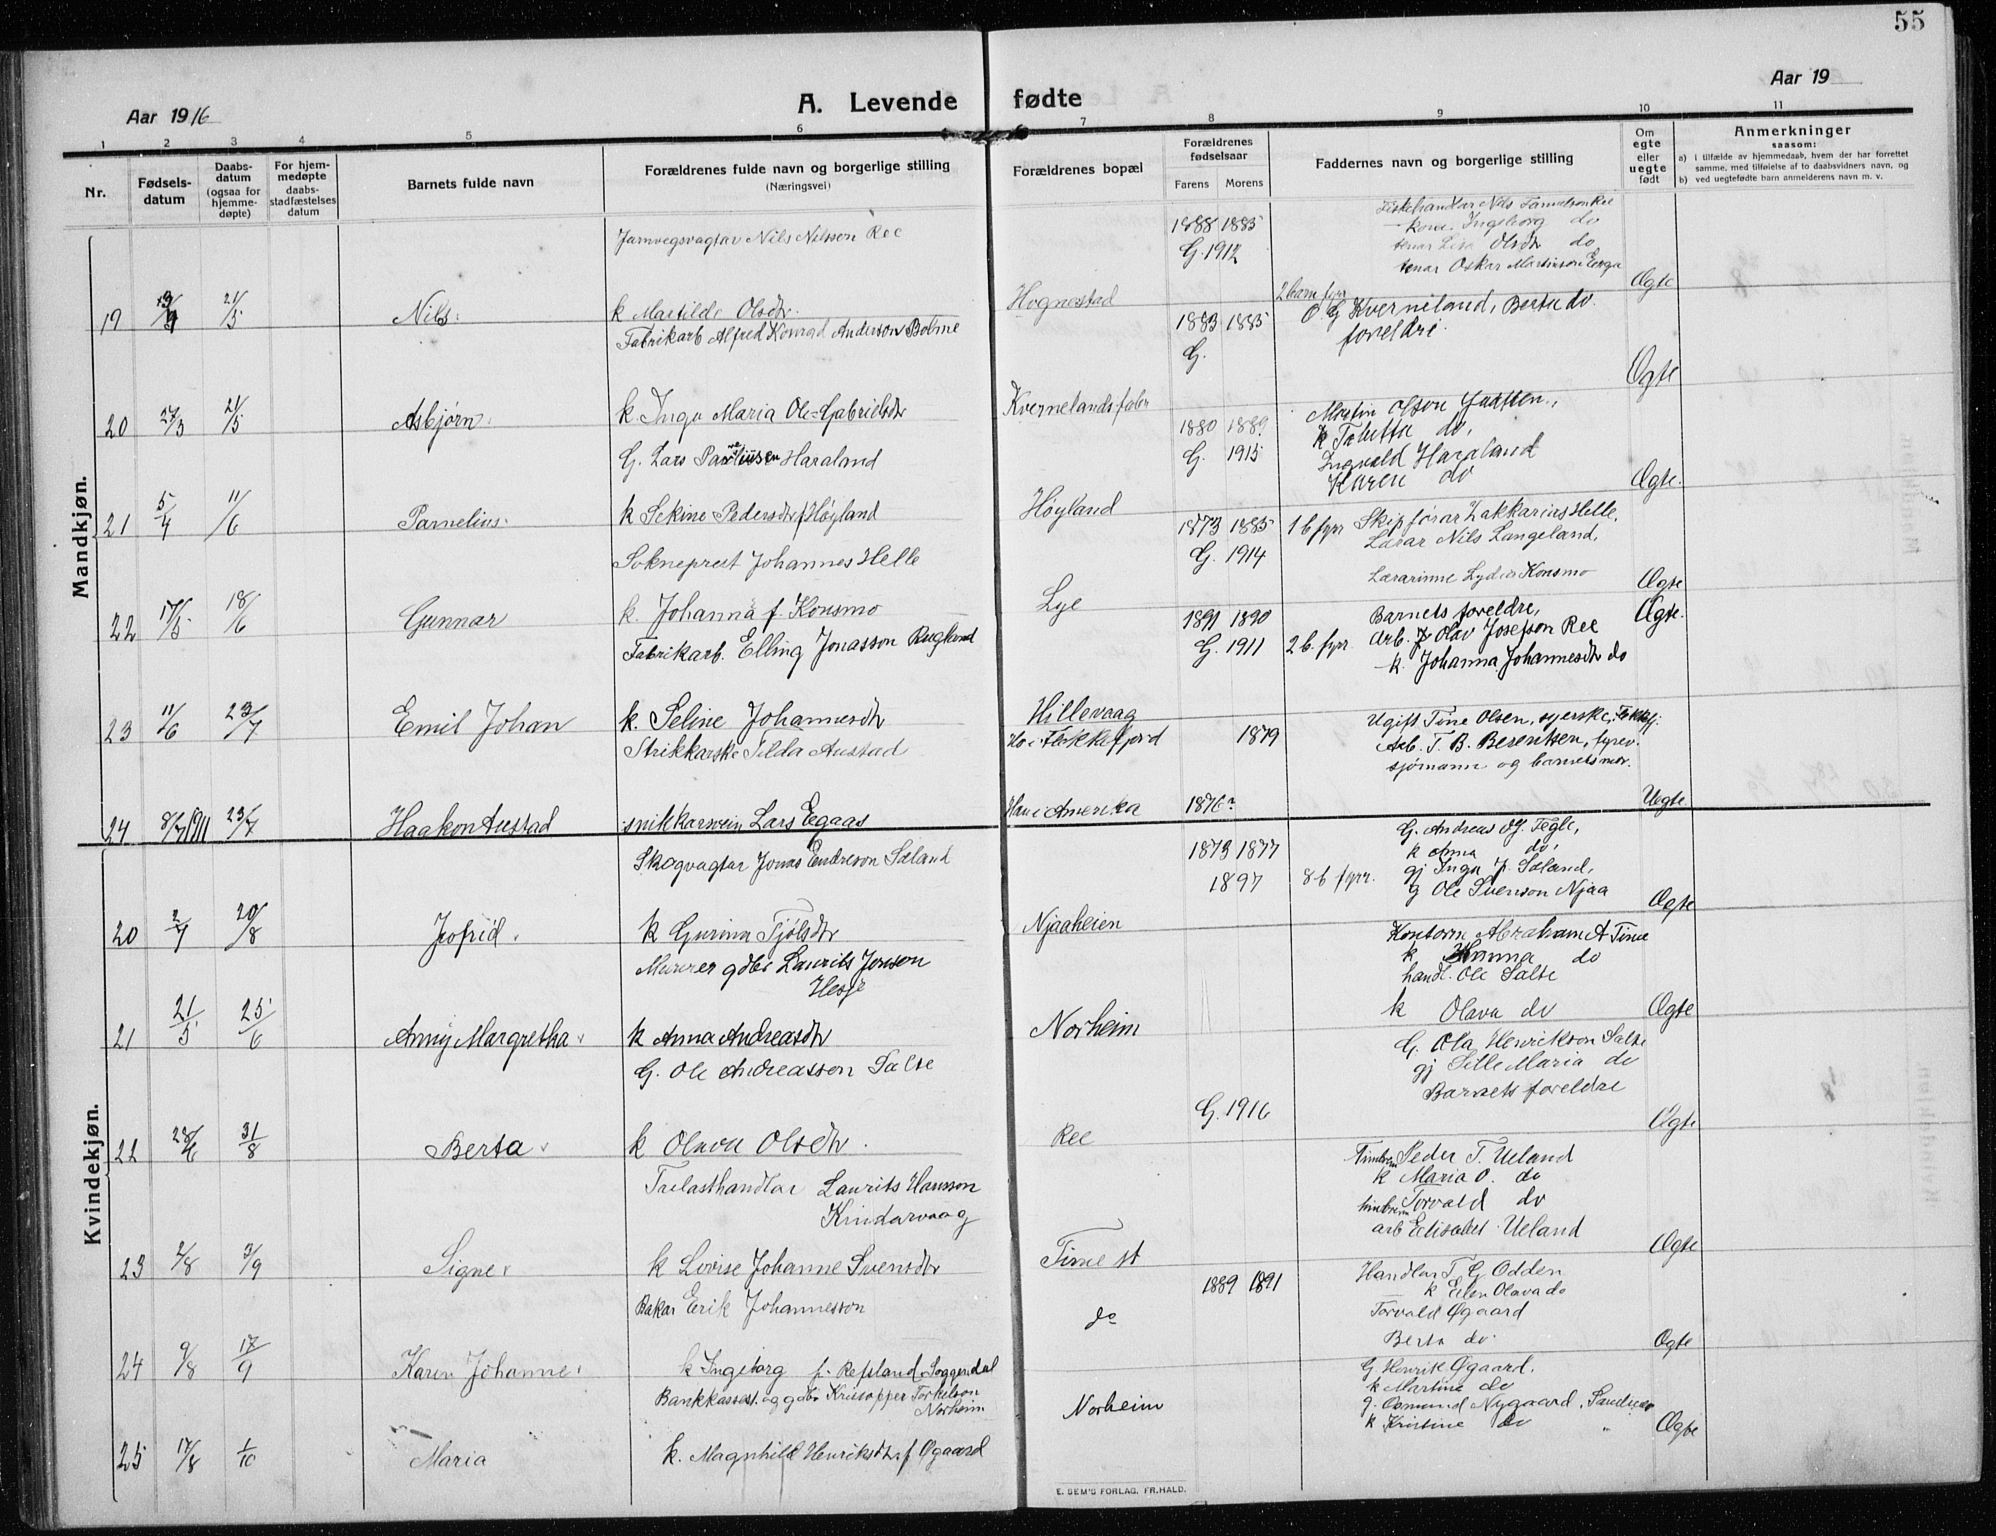 55
Aar 1916
A. Levende fødte
Aar 19
1 2 3 4 5 6 7 8 9 10 11
Nr.
Fødsels-
datum
Daabs-
datum
(ogsaa for
hjemme-
døpte)
For hjem-
medøpte
daabs-
stadfæstelses
datum
Barnets fulde navn
Forældrenes fulde navn og borgerlige stilling
(Næringsvei)
Forældrenes bopæl
Forældrenes
fødselsaar
Farens Morens
Faddernes navn og borgerlige stilling
Om
egte
eller
uegte
født
Anmerkninger
saasom:
a) i tilfælde av hjemmedaab, hvem der har forrettet
samme, med tilføielse af to daabsvidners navn, og
b) ved uegtefødte barn anmelderens navn m. v.
Mandkjøn.
Jarnvegsvagtar Nils Nilsson Ree
1888 1885
G. 1912
Fiskehandlar Nils Ree
kone Ingeborg do
tenar Lisa Olsdtr do
tenar Oskar Martinson Eenga
19 21/5 Nils k Matilde Olsdtr Hognestad 2 barn fyrr Ægte
Fabrikarb Alfred Konrad Anderson Bolme
1883 1885
G.
O G Kverneland, Berta do.
foreldri
20 27/3 21/5 Asbjørn k Inga Maria Ole-Gabrielsdtr Kvernelands fabr Ægte
G. Lars Haraland
1880 1889
G. 1915
Martin Olson
k Tabitta do,
Ingvald Haraland
Karen do
21 5/4 11/6 Parnelius k Sekine Pedersdtr f Høyland Høyland Ægte.
Sokneprest Johannes Helle
1873 1885
G. 1914
1 b fyrr Skipførar Zakkarias Helle,
Lærar Nils Langeland,
Lærarinne Lydia Konsmo
22 17/5 18/6 Gunnar k. Johanna f. Konsmo Lye Ægte
Fabrikarb. Elling Jonasson Rugland
1891 1890
G. 1911
2 b. fyrr
Barnets foreldre,
Arb. Olav Josefson Ree
k. Johanna Johannesdtr do
Ægte.
23 11/6 23/7 Emil Johan k. Seline Johannesdtr Hillevaag
Strikkarske Tilda Austad
Ho i Flekkefjord 1879
Ugift Tine Olsen, syerske,
Arb. T. B. Berentsen, fyrev.
sjømann og barnets mor.
24 8/7 1911 23/7 Haakon Austad snikkarsvein Lars Egaas Han i Amerika 1876? Uegte
Kvindekjøn.
Skogvagtar Jonas Endreson Sæland
1873 1877
1897
8 b fyrr.
G. Andreas OJ. Tegle,
k Anna do,
gj Inga J. Sæland,
g Ole Svenson Njaa
20 2/7 20/8 Jofrid k Gurina Tjølsdtr Njaaheien Ægte
Murer gdbr Laurits Jonson
Hesje
Kontorm Abraham A Time
k Hanna do
handl. Ole Salte
k Olava do
21 21/5 25/6 Anny Margretha k Anna Andreasdtr Norheim Ægte
G. Ole Andreasson Salte
G. 1916
G. Ola Henrikson Salte
gj Sille Maria do
Barnets foreldre
22 28/6 31/8 Berta k Olava Olsdtr Ree Ægte
Trelasthandlar Laurits Hansson
Kindarvaag
Peder T. Ueland
k Maria O. do
Torvald do
arb Elisabet Ueland
23 2/8 3/9 Signe k Lovise Johanne Svensdtr Time st Ægte
Bakar Erik Johannesson
do
1889 1891
Handlar T G Odden
k Elen Olava do
Torvald Øgaard
Berta do
24 9/8 17/9 Karen Johanne k Ingeborg f. Refsland Soggendal Ægte
Bankkasser. og gdbr Kristoffer Torkelson
Norheim
Norheim
G Henrik Øgaard.
k Martine do
g. Osmund Nygaard, Sandnes
k Kristine do "
25 17/8 1/10 Maria k. Magnhild Henriksdtr f Øgaard Ægte
E. SEM'S FORLAG. FR.HALD.